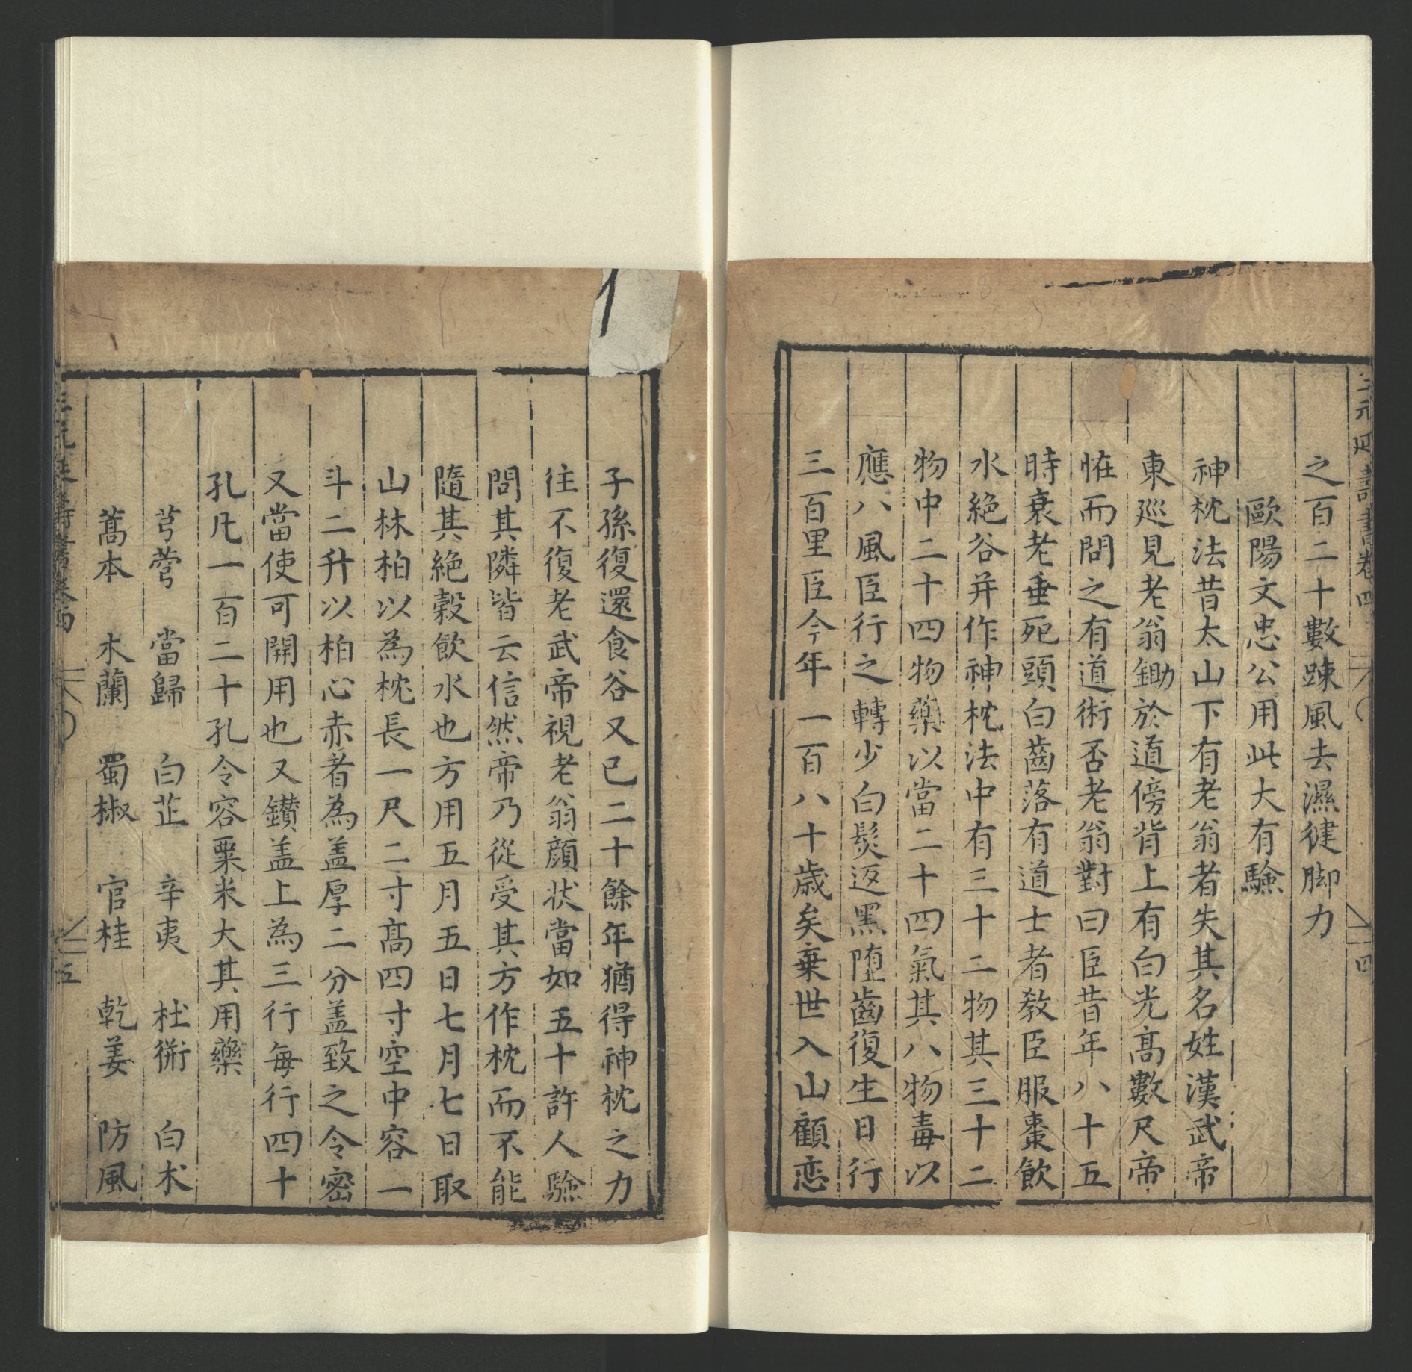 三元延壽書卷四
四
之百二十數踈風去濕健脚力
歐陽文忠公用此大有驗
神枕法昔太山下有老翁者失其名姓漢武帝
東廵見老翁鋤於道傍背上有白光髙數尺帝
恠而問之有道術否老翁對曰臣昔年八十五
時衰老垂死頭白齒落有道士者教臣服棗飲
水絶谷并作神枕法中有三十二物其三十二
物中二十四物藥以當二十四氣其八物毒以
應八風臣行之轉少白髮返黑堕齒復生日行
三百里臣今年一百八十歳矣棄世入山顧恋
子孫復還食谷又已二十餘年猶得神枕之力
往不復老武帝視老翁顔状當如五十許人驗
問其隣皆云信然帝乃從受其方作枕而不能
隨其絶穀飲水也方用五月五日七月七日取
山林柏以為枕長一尺二寸髙四寸空中容一
斗二升以柏心赤者為盖厚二分盖致之令密
又當使可開用也又鑚盖上為三行每行四十
孔凡一百二十孔令容粟米大其用藥
芎藭　當歸　白芷　辛夷　杜衡　白术
藁本　木蘭　蜀椒　官桂　乾姜　防風
三元延壽書卷四
五